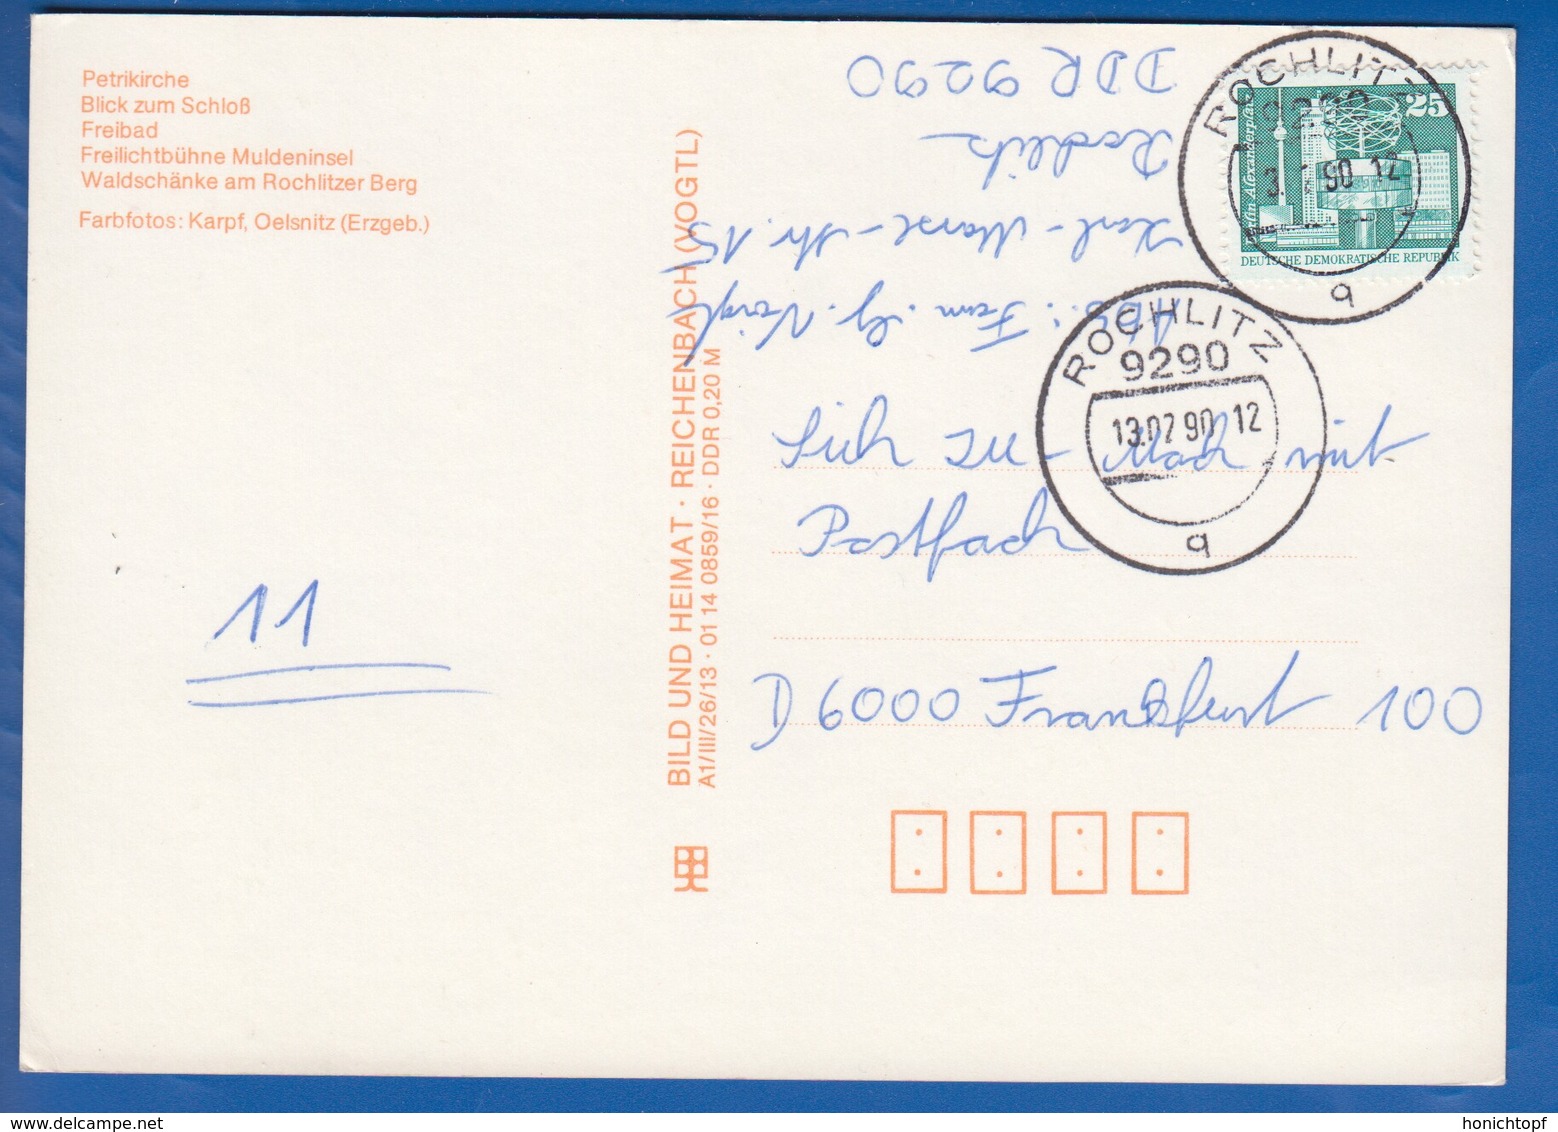 Petrikirche
Blick zum Schloß
Freibad
Freilichtbühne Muldeninsel
Waldschänke am Rochlitzer Berg
Farbfotos: Karpf, Oelsnitz (Erzgeb.)
11
BILD UND HEIMAT · REICHENBACH (VOGTL)
A1/III/26/13 · 01 14 0859/16 · DDR 0,20 M
Abs.: Fam. G. Voigt
Karl-Marx-Str. 15
Rochlitz
DDR 9290
25
Berlin, Alexanderplatz
DEUTSCHE DEMOKRATISCHE REPUBLIK
ROCHLITZ
9290
90 12
q
ROCHLITZ
9290
13.07.90 12
q
mit
Postfach
D 6000 Frankfurt 100
www.delcampe.net
honichtopf